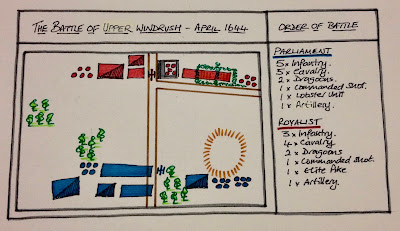 THE BATTLE OF UPPER WINDRUSH - APRIL 1644
ORDER OF BATTLE
PARLIAMENT
5 x Infantry.
5 x Cavalry.
2 x Dragoons.
1 x Commanded Shot.
1 x Lobster Unit
1 x Artillery.
ROYALIST
3 x Infantry.
4 x Cavalry.
2 x Dragoons
1 x Commanded Shot.
1 x Elite Pike
1 x Artillery.